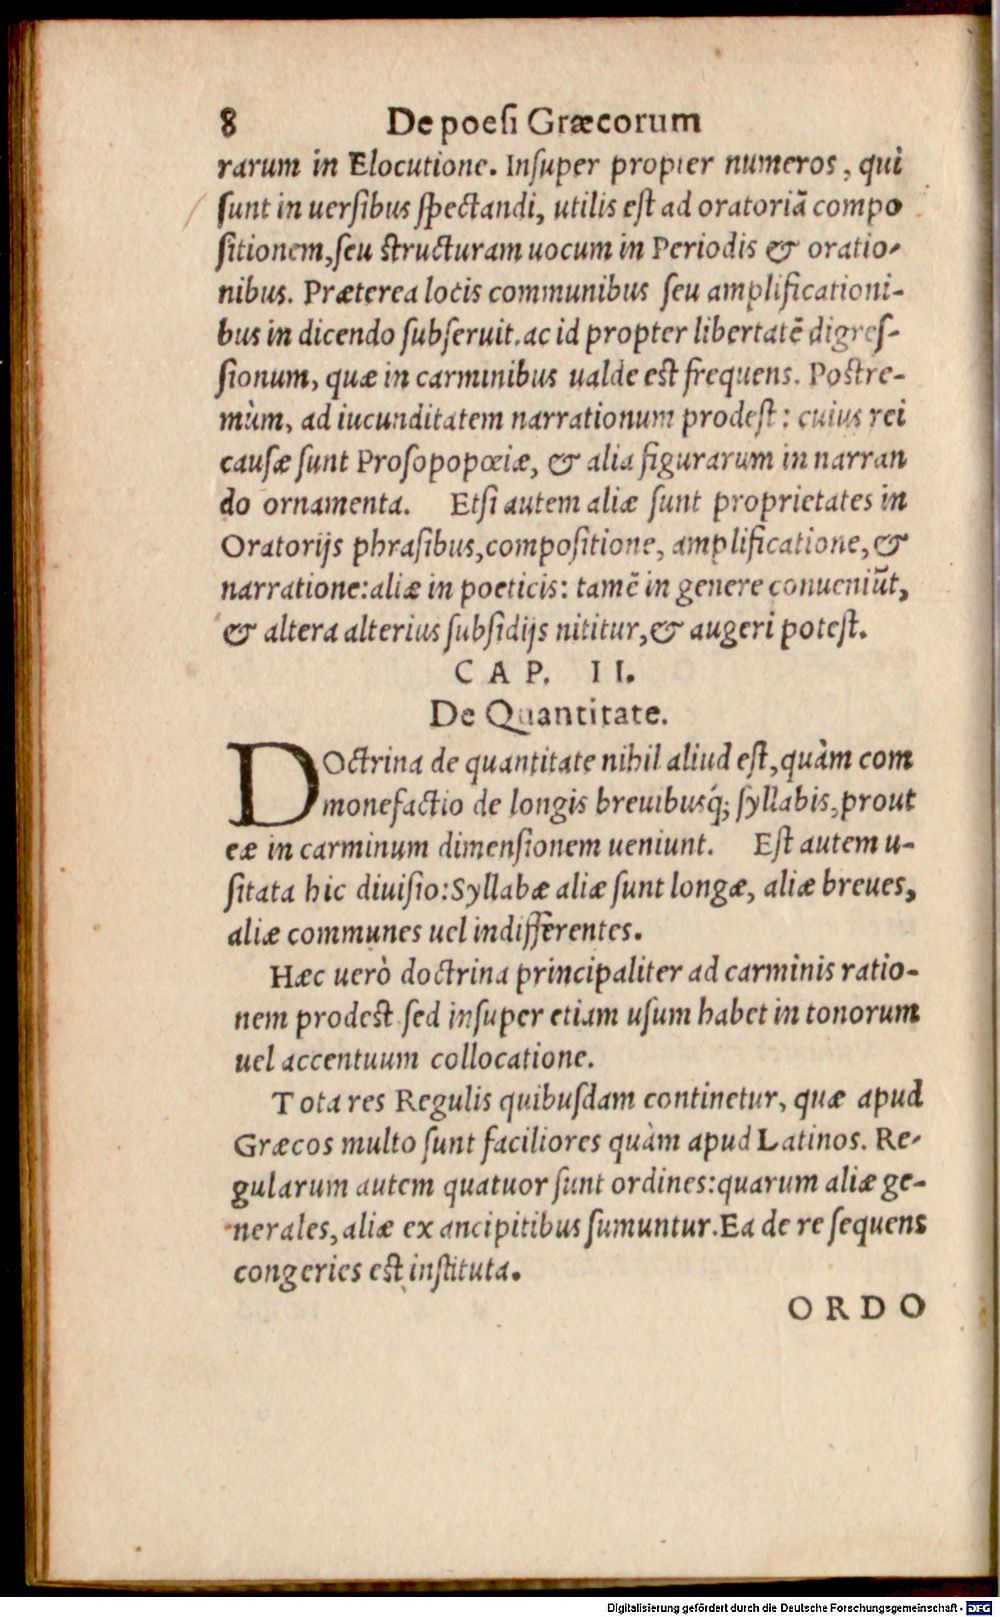 8 De poesi Græcorum
rarum in Elocutione. Insuper propter numeros, qui
sunt in uersibus spectandi, utilis est ad oratoriā compo
sitionem, seu structuram uocum in Periodis & oratio-
nibus. Præterea locis communibus seu amplificationi-
bus in dicendo subseruit. ac id propter libertatē digres-
sionum, quæ in carminibus ualde est frequens. Postre-
mùm, ad iucunditatem narrationum prodest: cuius rei
causæ sunt Prosopopœiæ, & alia figurarum in narran
do ornamenta. Etsi autem aliæ sunt proprietates in
Oratorijs phrasibus, compositione, amplificatione, &
narratione: aliæ in poeticis: tamē in genere conueniūt,
& altera alterius subsidijs nititur, & augeri potest.
CAP. II.
De Quantitate.
DOctrina de quantitate nihil aliud est, quàm com
monefactio de longis breuibusq́; syllabis, prout
eæ in carminum dimensionem ueniunt. Est autem u-
sitata hic diuisio: Syllabæ aliæ sunt longæ, aliæ breues,
aliæ communes uel indifferentes.
Hæc uerò doctrina principaliter ad carminis ratio-
nem prodest sed insuper etiam usum habet in tonorum
uel accentuum collocatione.
Tota res Regulis quibusdam continetur, quæ apud
Græcos multo sunt faciliores quàm apud Latinos. Re-
gularum autem quatuor sunt ordines: quarum aliæ ge-
nerales, aliæ ex ancipitibus sumuntur. Ea de re sequens
congeries est instituta.
ORDO
Digitalisierung gefördert durch die Deutsche Forschungsgemeinschaft - DFG